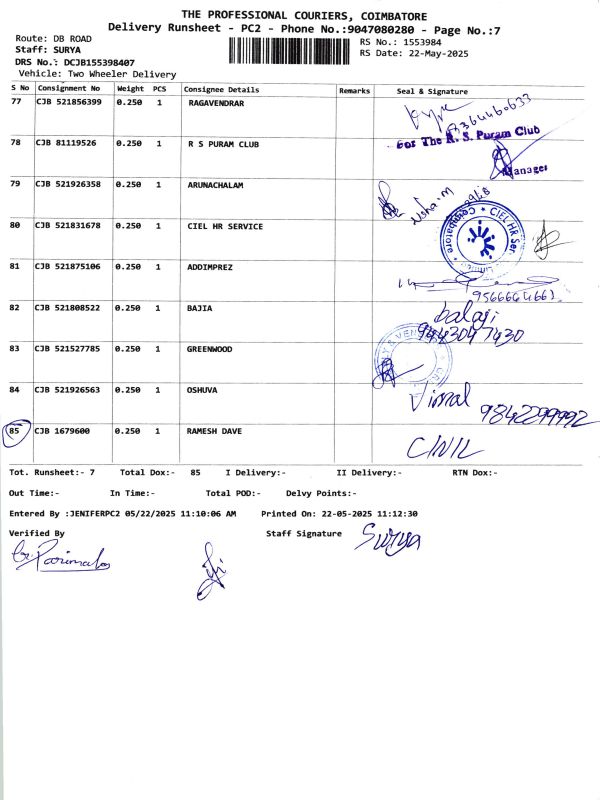 THE PROFESSIONAL COURIERS, COIMBATORE
Delivery Runsheet - PC2 - Phone No.:9047080280 - Page No.:7
Route: DB ROAD
RS No.: 1553984
Staff: SURYA
RS Date: 22-May-2025
DRS No.: DCJB155398407
Vehicle: Two Wheeler Delivery
S No Consignment No Weight PCS Consignee Details Remarks Seal & Signature
77 CJB 521856399 0.250 1 RAGAVENDRAR
78 CJB 81119526 0.250 1 R S PURAM CLUB For The R. S. Puram Club
Manager
79 CJB 521926358 0.250 1 ARUNACHALAM Usha.M
80 CJB 521831678 0.250 1 CIEL HR SERVICE CIEL HR Ser Coimbatore
81 CJB 521875106 0.250 1 ADDIMPREZ
82 CJB 521808522 0.250 1 BAJIA balaji
9443047430
83 CJB 521527785 0.250 1 GREENWOOD
84 CJB 521926563 0.250 1 OSHUVA Vimal 9842299992
85 CJB 1679600 0.250 1 RAMESH DAVE
Tot. Runsheet:- 7 Total Dox:- 85 I Delivery:- II Delivery:- RTN Dox:-
Out Time:- In Time:- Total POD:- Delvy Points:-
Entered By :JENIFERPC2 05/22/2025 11:10:06 AM Printed On: 22-05-2025 11:12:30
Verified By Staff Signature Surya